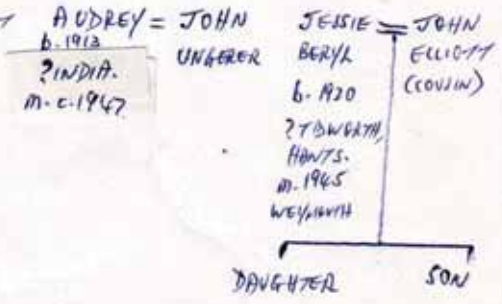 AUDREY = JOHN
UNGERER
b. 1913
?INDIA.
m. c. 1947
JESSIE = JOHN
BERYL
ELLIOTT
(COUSIN)
b. 1920
?TIDWORTH,
HANTS.
m. 1945
WEYMOUTH
DAUGHTER
SON